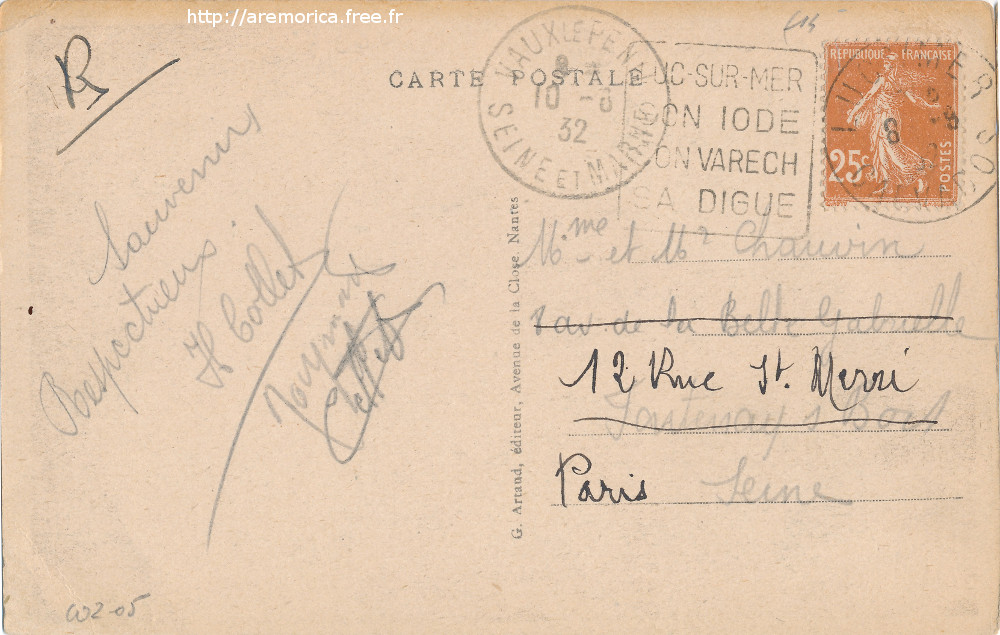 http://aremorica.free.fr
R
CARTE POSTALE
VAUX LE PENIL
10 - 8
32
SEINE ET MARNE
LUC-SUR-MER
SON IODE
SON VARECH
SA DIGUE
RÉPUBLIQUE FRANÇAISE
25c
POSTES
Souvenirs
Respectueux.
H Collet
Raymond
G. Artaud, éditeur, Avenue de la Close, Nantes
Mme et Mr Chauvin
7 av. de la Belle Gabrielle
12 Rue St. Merri
Fontenay s Bois
Paris Seine
W2-05